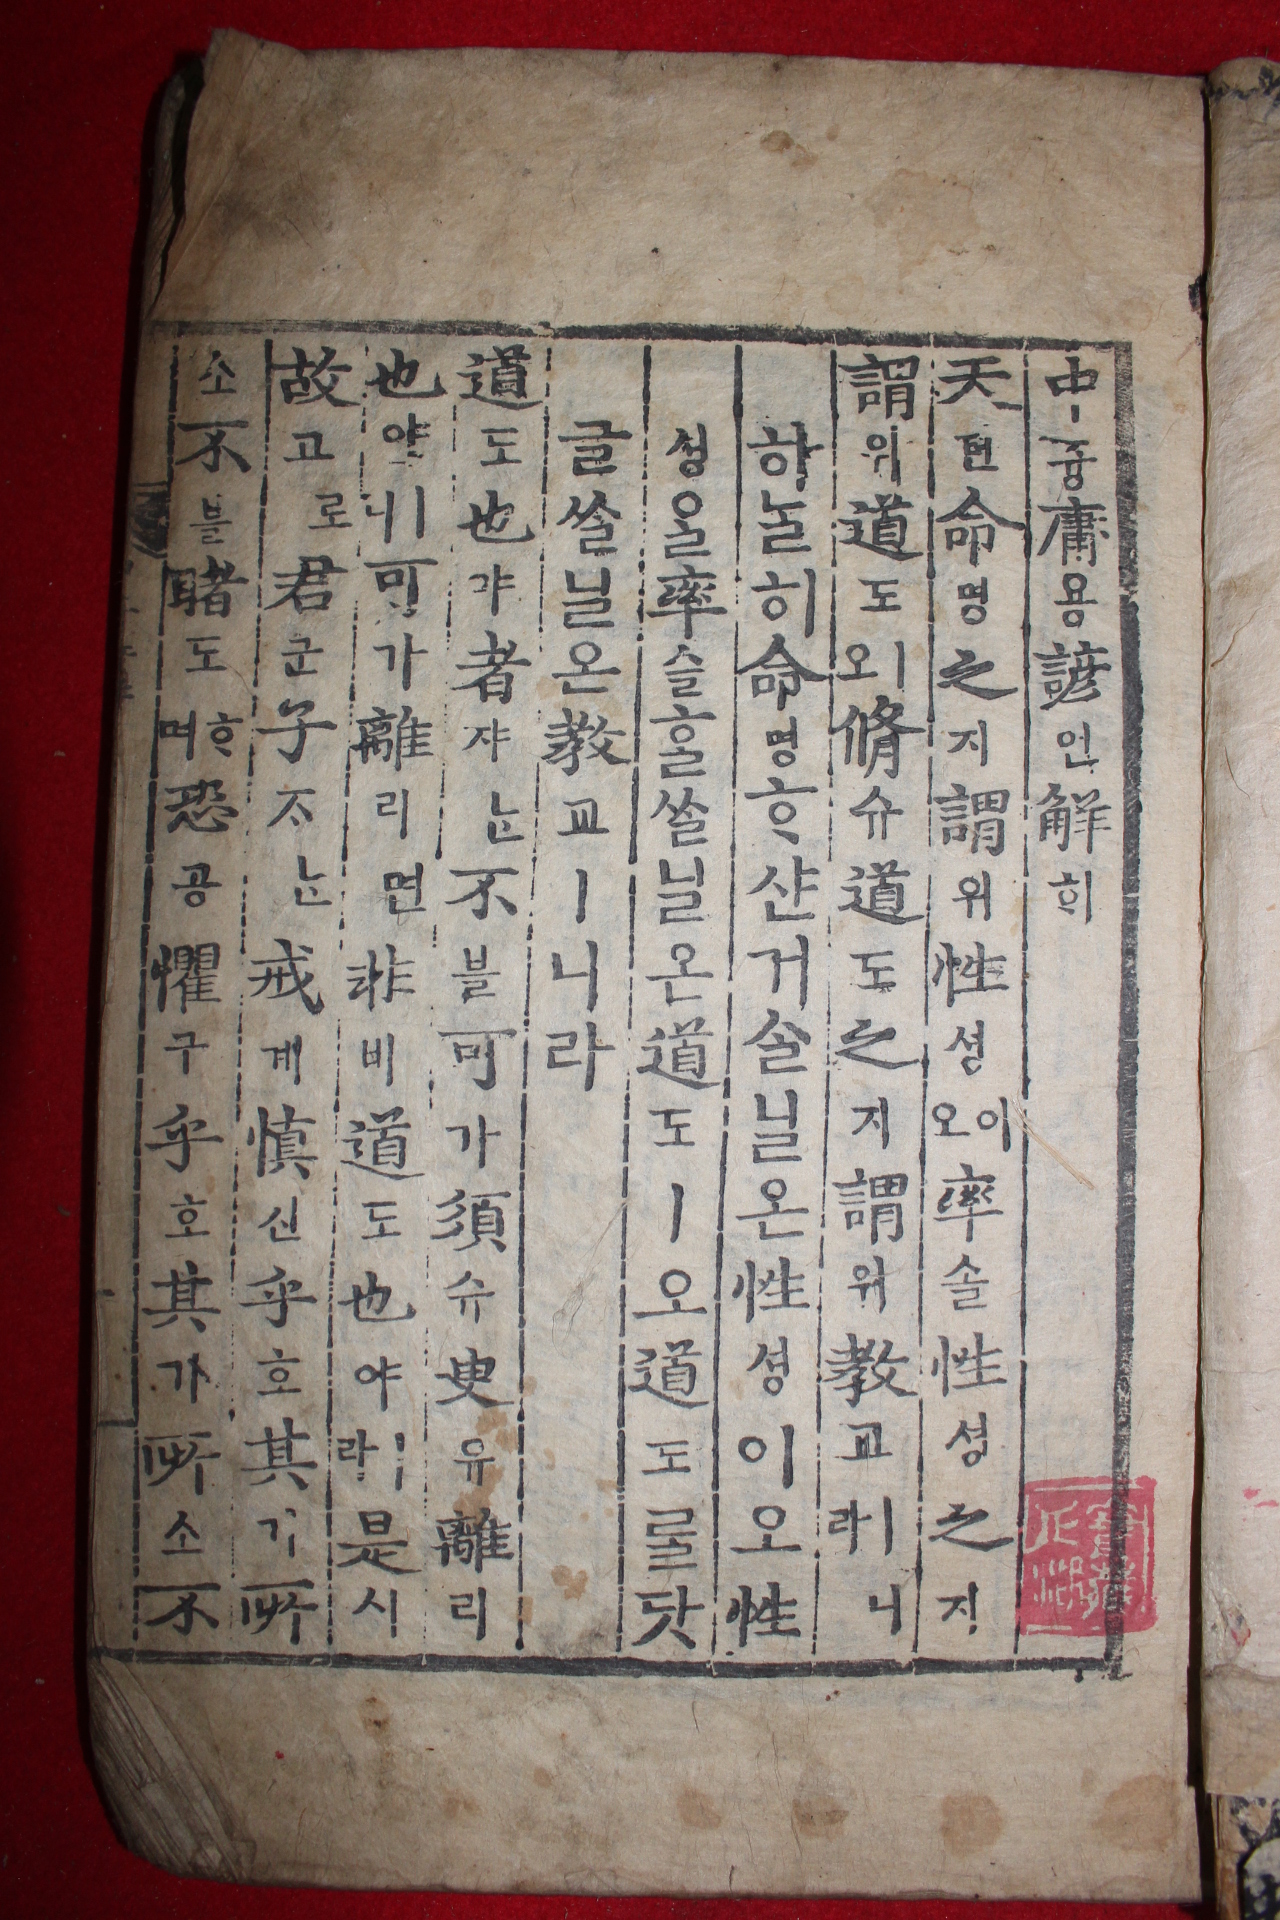 中즁庸용諺언解ᄒᆡ
天텬命명之지謂위性셩이오率솔性셩之지
謂위道도ㅣ오脩슈道도之지謂위敎교ㅣ니라
하ᄂᆞᆯ히命명ᄒᆞ샨거ᄉᆞᆯ닐온性셩이오性
셩을率솔ᄒᆞᆯᄊᆞᆯ닐온道도ㅣ오道도ᄅᆞᆯ닷
글ᄊᆞᆯ닐온敎교ㅣ니라
道도也야者쟈ᄂᆞᆫ不블可가須슈臾유離리
也야ㅣ니可가離리면非비道도也야ㅣ라是시
故고로君군子ᄌᆞᄂᆞᆫ戒계愼신乎호其기所
소不블睹도ᄒᆞ며恐공懼구乎호其기所소不